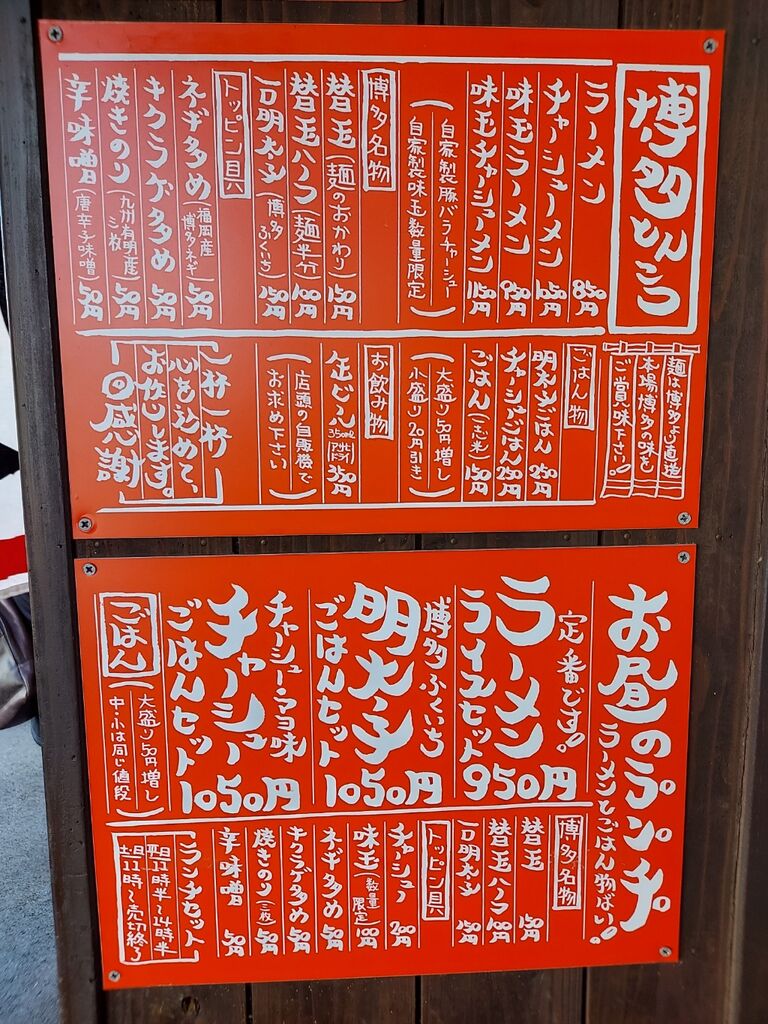 博多とんこつ
ラーメン 850円
チャーシューメン 1050円
味玉ラーメン 950円
味玉チャーシューメン 1150円
(自家製豚バラチャーシュー
自家製味玉数量限定)
博多名物
替玉(麺のおかわり) 150円
替玉ハーフ(麺半分) 100円
一口明太子(博多ふくいち) 150円
トッピン具
ネギ多め(福岡産博多ネギ) 50円
キクラゲ多め 50円
焼きのり(九州有明産三枚) 50円
辛味噌(唐辛シ味噌) 50円
麺は博多より直送
本場博多の味を
ご賞味下さい。
ごはん物
明太ごはん 250円
チャーシューごはん 250円
ごはん 150円
(大盛り50円増し
小盛り20円引き)
お飲み物
缶ビール 350ml アサヒドライ 350円
(店頭の自販機で
お求め下さい)
一杯一杯
心を込めて、
お作りします。
一日感謝
お昼のランチ
ラーメンとごはん物ばい。
定番です。
ラーメン
ライスセット 950円
博多ふくいち
明太子
ごはんセット 1050円
チャーシュー・マヨ味
チャーシュー
ごはんセット 1050円
ごはん
(大盛り50円増し
中・小は同じ値段)
博多名物
替玉 150円
替玉ハーフ 100円
一口明太子 150円
トッピン具
チャーシュー 200円
味玉(数量限定) 100円
ネギ多め 50円
キクラゲ多め 50円
焼きのり(三枚) 50円
辛味噌 50円
ランチセット
平日11時半〜14時半
土日11時〜売切終了